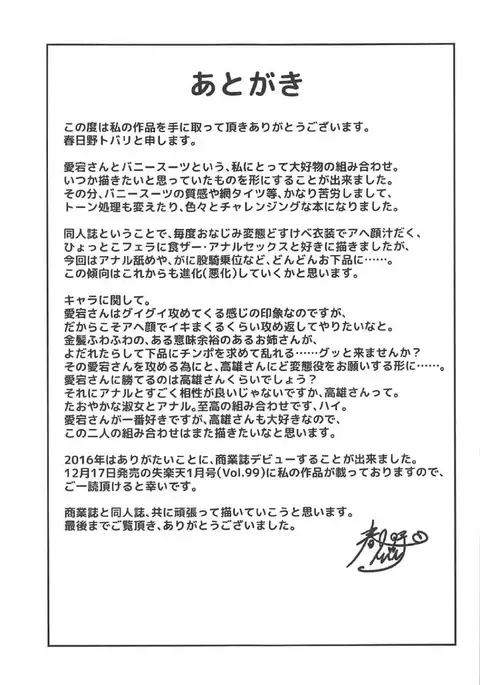 あとがき
この度は私の作品を手に取って頂きありがとうございます。
春日野トバリと申します。
愛宕さんとバニースーツという、私にとって大好物の組み合わせ。
いつか描きたいと思っていたものを形にすることが出来ました。
その分、バニースーツの質感や網タイツ等、かなり苦労しまして、
トーン処理も変えたり、色々とチャレンジングな本になりました。
同人誌ということで、毎度おなじみ変態どすけべ衣装でアヘ顔汁だく、
ひょっとこフェラに食ザー・アナルセックスと好きに描きましたが、
今回はアナル舐めや、がに股騎乗位など、どんどんお下品に……。
この傾向はこれからも進化(悪化)していくかと思います。
キャラに関して。
愛宕さんはグイグイ攻めてくる感じの印象なのですが、
だからこそアヘ顔でイキまくるくらい攻め返してやりたいなと。
金髪ふわふわの、ある意味余裕のあるお姉さんが、
よだれたらして下品にチンポを求めて乱れる……グッと来ませんか?
その愛宕さんを攻める為にと、高雄さんにど変態役をお願いする形に……。
愛宕さんに勝てるのは高雄さんくらいでしょう?
それにアナルとすごく相性が良いじゃないですか、高雄さんって。
たおやかな淑女とアナル。至高の組み合わせです、ハイ。
愛宕さんが一番好きですが、高雄さんも大好きなので、
この二人の組み合わせはまた描きたいなと思います。
2016年はありがたいことに、商業誌デビューすることが出来ました。
12月17日発売の失楽天1月号(Vol.99)に私の作品が載っておりますので、
ご一読頂けると幸いです。
商業誌と同人誌、共に頑張って描いていこうと思います。
最後までご覧頂き、ありがとうございました。